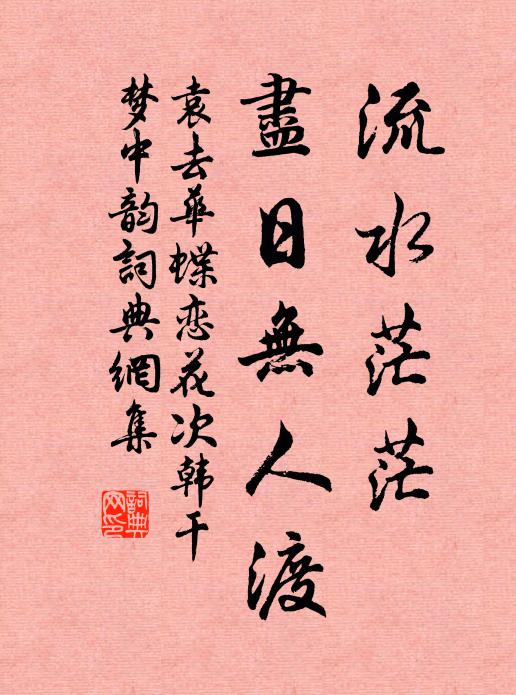 流水茫茫
盡日無人渡
袁去華蝶恋花次韩干
梦中韵詞典網集
詞典网印